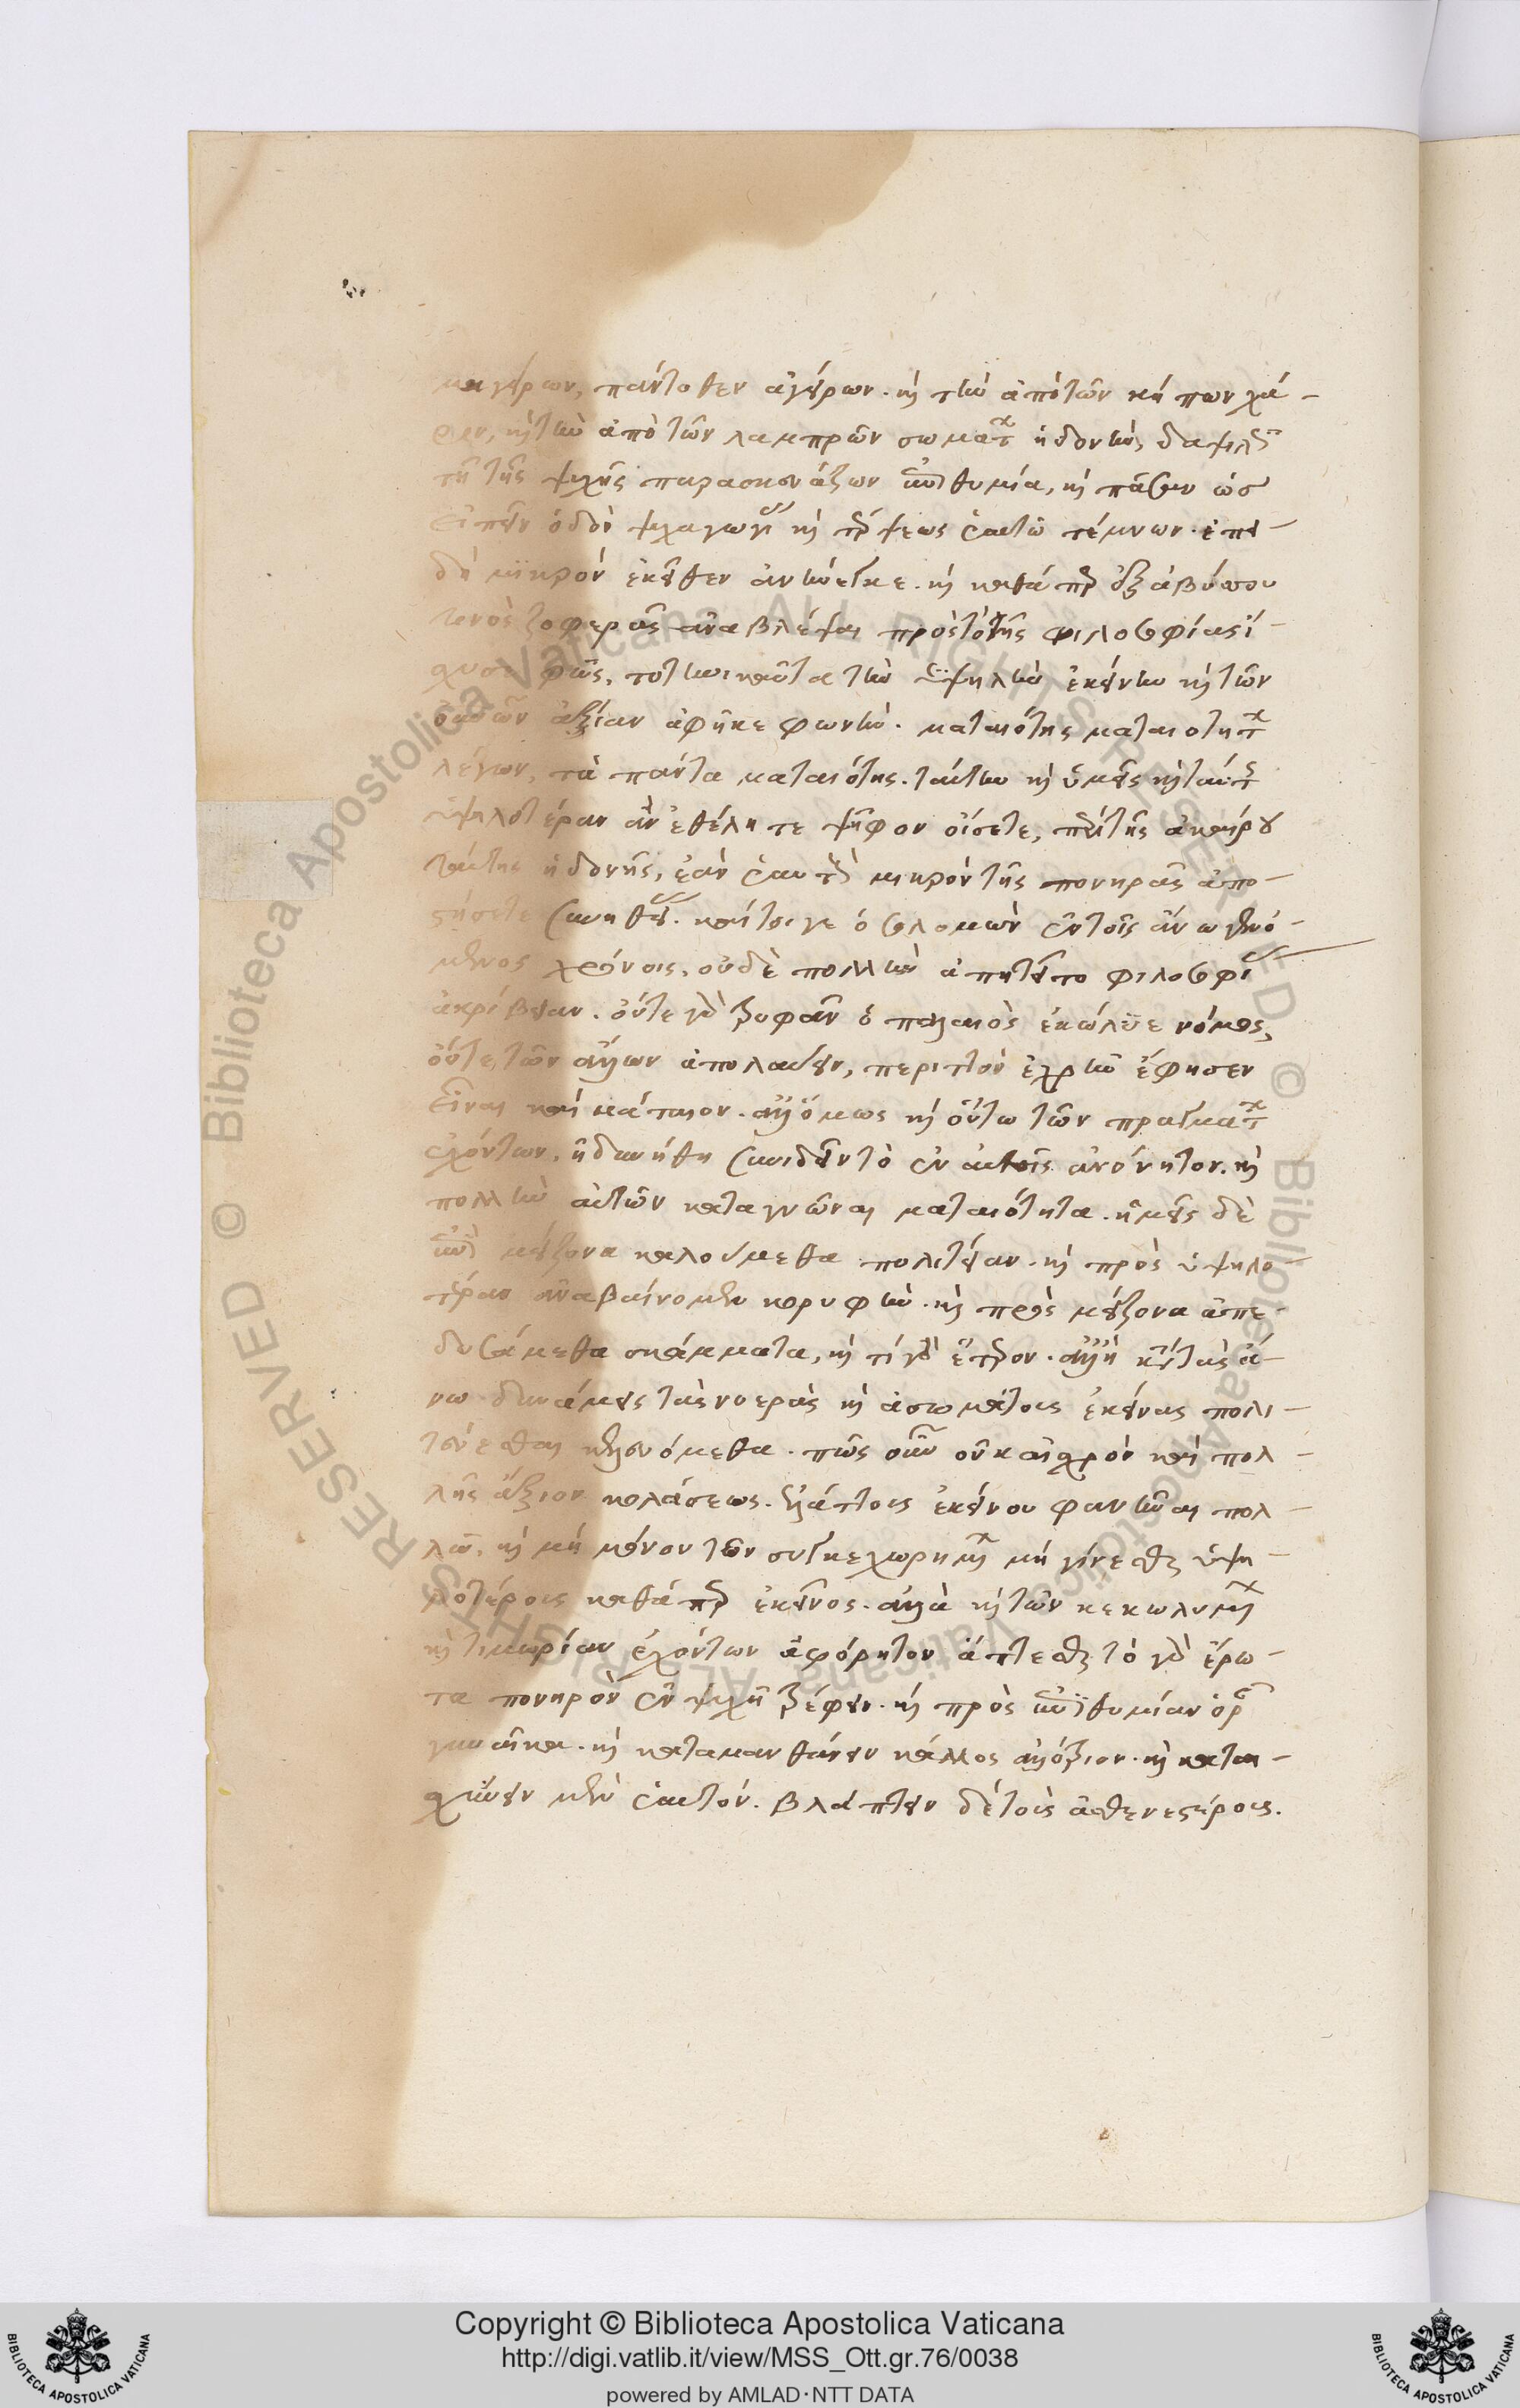 μαγείρων, πάντοθεν ἀγείρων. καὶ τὴν ἀπὸ τῶν κήπων χά-
ριν, καὶ τὴν ἀπὸ τῶν λαμπρῶν σωμάτων ἡδονὴν, δαψιλῆ
τῇ τῆς ψυχῆς παρασκευάζων ἐπιθυμία, καὶ πᾶσαν ὡς
εἰπεῖν ὁδὸν ψυχαγωγίας καὶ τέρψεως ἑαυτῶ τέμνων. ἐπει-
δὴ μικρὸν ἐκεῖθεν ἀνήνεγκε. καὶ καθάπερ ἐξ ἀβύσσου
τινὸς ζοφερᾶς ἀναβλέψαι πρὸς τὸ τῆς φιλοσοφίας ἴ-
χυσε φῶς, τοτηνικαῦτα τὴν ὑψηλὴν ἐκείνην καὶ τῶν
οὐρανῶν ἀξίαν ἀφῆκε φωνὴν. ματαιότης ματαιοτήτων
λέγων, τὰ πάντα ματαιότης. ταύτην καὶ ὑμεῖς καὶ ταύτης
ὑψηλοτέραν ἂν ἐθέλητε ψῆφον οἴσετε, περὶ τῆς ἀκαίρου
ταύτης ἡδονῆς, ἐὰν ἑαυτοὺς μικρὸν τῆς πονηρᾶς ἀπο-
στήσετε συνηθείας. καίτοι γε ὁ σολομὼν ἐν τοῖς ἄνω γενό-
μενος χρόνοις, οὐδὲ πολλὴν ἀπητεῖτο φιλοσοφίας
ἀκρίβειαν. οὔτε γὰρ τρυφᾶν ὁ παλαιὸς ἐκώλυε νόμος,
οὔτε τῶν ἄλλων ἀπολαύειν, περιττὸν ἐχρῆν ἔφησεν
εἶναι καὶ μάταιον. ἀλλ' ὅμως καὶ οὕτω τῶν πραγμάτων
ἐχόντων, ἠδυνήθη συνιδεῖν τὸ ἐν αὐτοῖς ἀνόνητον. καὶ
πολλὴν αὐτῶν καταγνῶναι ματαιότητα. ἡμεῖς δὲ
ἐπὶ μείζονα καλούμεθα πολιτείαν. καὶ πρὸς ὑψηλο-
τέραν ἀναβαίνομεν κορυφὴν. καὶ πρὸς μείζονα ἀπε-
δυσάμεθα σκάμματα, καὶ τί γὰρ ἕτερον. ἀλλ' ἢ κατὰ τὰς ἄ-
νω δυνάμεις τὰς νοερὰς καὶ ἀσωμάτους ἐκείνας πολι-
τεύεσθαι κελευόμεθα. πῶς οὖν οὐκ αἰσχρὸν καὶ πολ-
λῆς ἄξιον κολάσεως. ἐλάττους ἐκείνου φανῆναι πολ-
λῶ, καὶ μὴ μόνον τῶν συγκεχωρημένων μὴ γίνεσθαι ὑψη-
λοτέρους καθάπερ ἐκεῖνος. ἀλλὰ καὶ τῶν κεκωλυμένων
καὶ τιμωρίαν ἐχόντων ἀφόρητον ἅπτεσθαι τὸ γὰρ ἔρω-
τα πονηρὸν ἐν ψυχῆ τρέφειν. καὶ πρὸς ἐπιθυμίαν ὁρᾶν
γυναῖκα. καὶ καταμανθάνειν κάλλος ἀλλότριον. καὶ καται-
σχύνειν μὲν ἑαυτόν. βλάπτειν δὲ τοὺς ἀσθενεστέρους.
Copyright © Biblioteca Apostolica Vaticana
http://digi.vatlib.it/view/MSS_Ott.gr.76/0038
powered by AMLAD·NTT DATA